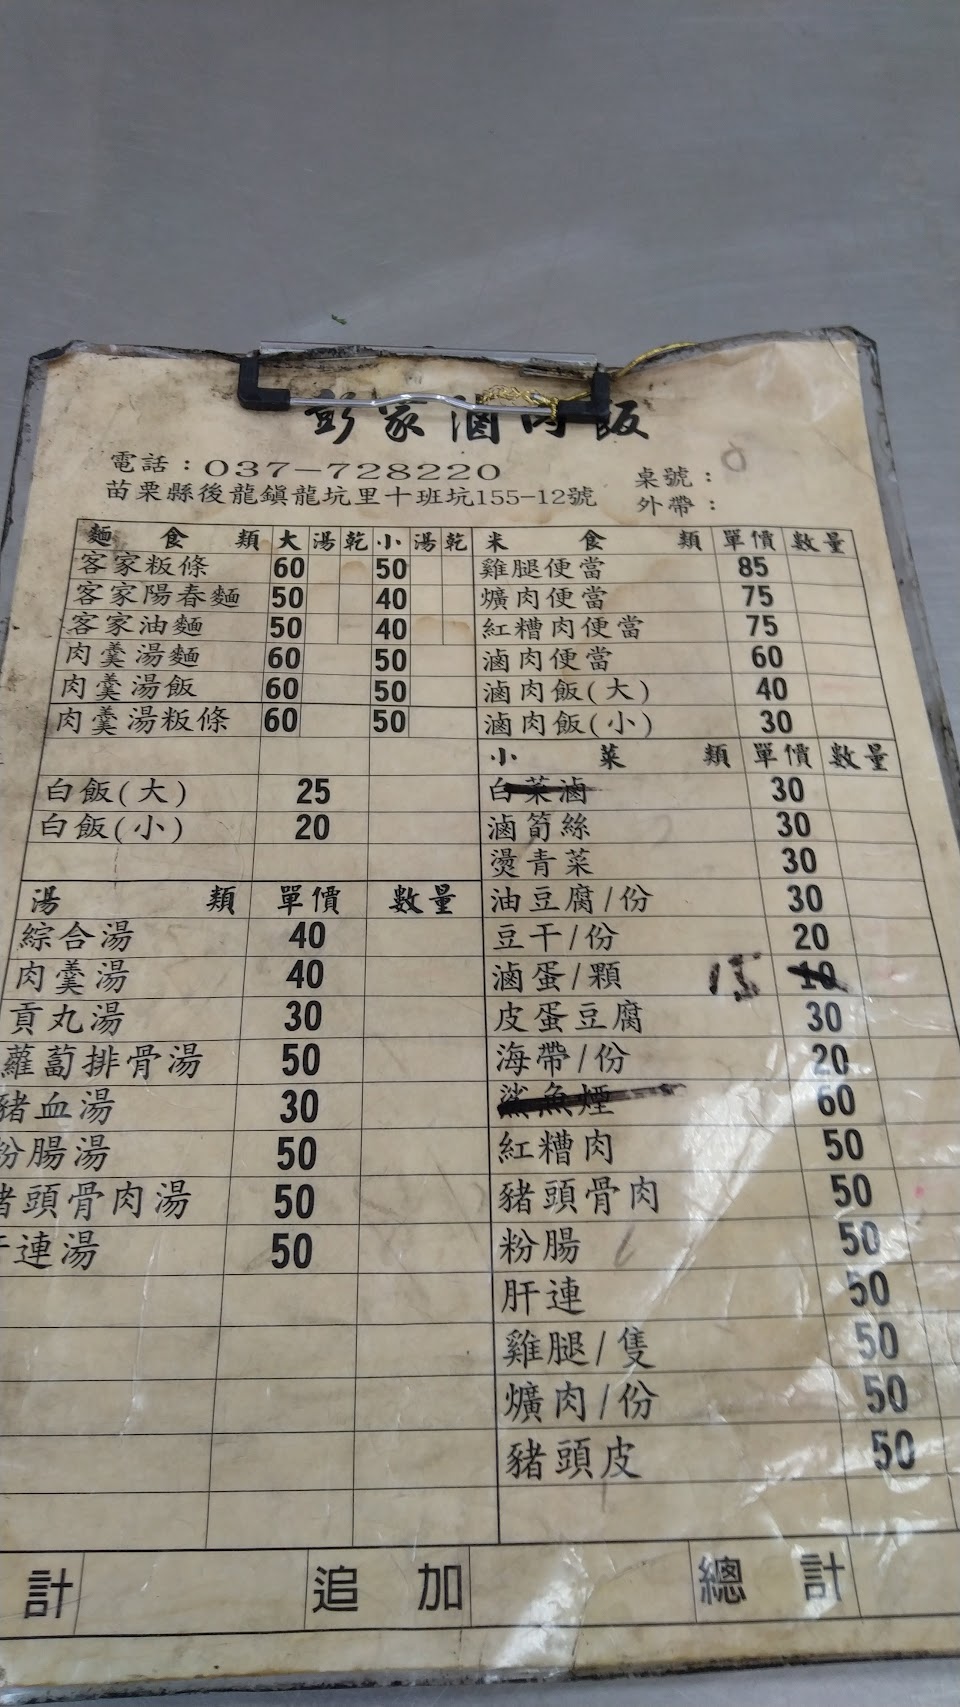 彭家滷肉飯
電話：037-728220
苗栗縣後龍鎮龍坑里十班坑155-12號
桌號：
外帶：
麵食類 大 湯 乾 小 湯 乾
客家粄條 60 50
客家陽春麵 50 40
客家油麵 50 40
肉羹湯麵 60 50
肉羹湯飯 60 50
肉羹湯粄條 60 50
白飯(大) 25
白飯(小) 20
湯類 單價 數量
綜合湯 40
肉羹湯 40
貢丸湯 30
蘿蔔排骨湯 50
豬血湯 30
粉腸湯 50
豬頭骨肉湯 50
肝連湯 50
米食類 單價 數量
雞腿便當 85
爌肉便當 75
紅糟肉便當 75
滷肉便當 60
滷肉飯(大) 40
滷肉飯(小) 30
小菜類 單價 數量
白菜滷 30
滷筍絲 30
燙青菜 30
油豆腐/份 30
豆干/份 20
滷蛋/顆 15 10
皮蛋豆腐 30
海帶/份 20
鯊魚煙 60
紅糟肉 50
豬頭骨肉 50
粉腸 50
肝連 50
雞腿/隻 50
爌肉/份 50
豬頭皮 50
計 追加 總計